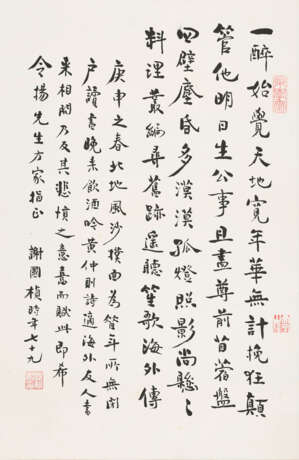 一醉始覺天地寬年華無計挽狂顛
管他明日生公事且盡尊前苜蓿盤
四壁塵昏多漠漠孤燈照影尚懸〻
料理叢編尋舊跡遥聽笙歌海外傳
庚申之春北地風沙撲面為管斗所無閉
户讀書晚来飲酒吟黄仲則詩適海外友人書
来相問乃及其悲憤之意意而賦此即希
令揚先生方家指正
謝國楨時年七十九